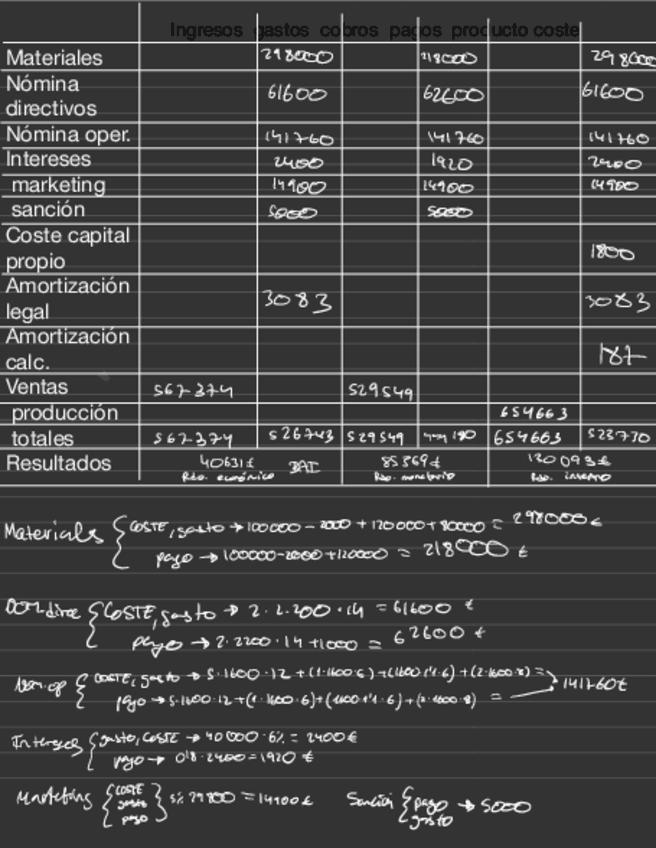 Ingresos gastos cobros pagos producto coste
Materiales 298000 218000 298000
Nómina directivos 61600 62600 61600
Nómina oper. 141760 141760 141760
Intereses 2400 1920 2400
marketing 14900 14900 14900
sanción 5000 5000
Coste capital propio 1800
Amortización legal 3083 3083
Amortización calc. 187
Ventas 567374 529549
producción 654663
totales 567374 526743 529549 654663 523770
Resultados 40631£ BAI 85369£ 130093£
Rdo. económico Rdo. monetario Rdo. interno
Materials { COSTE, gasto → 100000 - 2000 + 120000 + 80000 = 298000€
pago → 100000-2000+120000 = 218000 €
COSTE, gasto → 2·2.200·14 = 61600 €
pago → 2·2200·14 +1000 = 62600 €
Nom.op { COSTE, gasto → 5·1600·12 + (1·1600·6) + (1600·1'1·6) + (2·1600·8) = 141760€
pago → 5·1600·12+(1·1600·6)+(1600·1'1·6)+(2·1600·8) =
Intereses { gasto, COSTE → 40000·6% = 2400€
pago → 0'8·2400=1920 €
Marketing { COSTE gasto pago } 5% 29800 = 14900€ Sanción { pago gasto → 5000